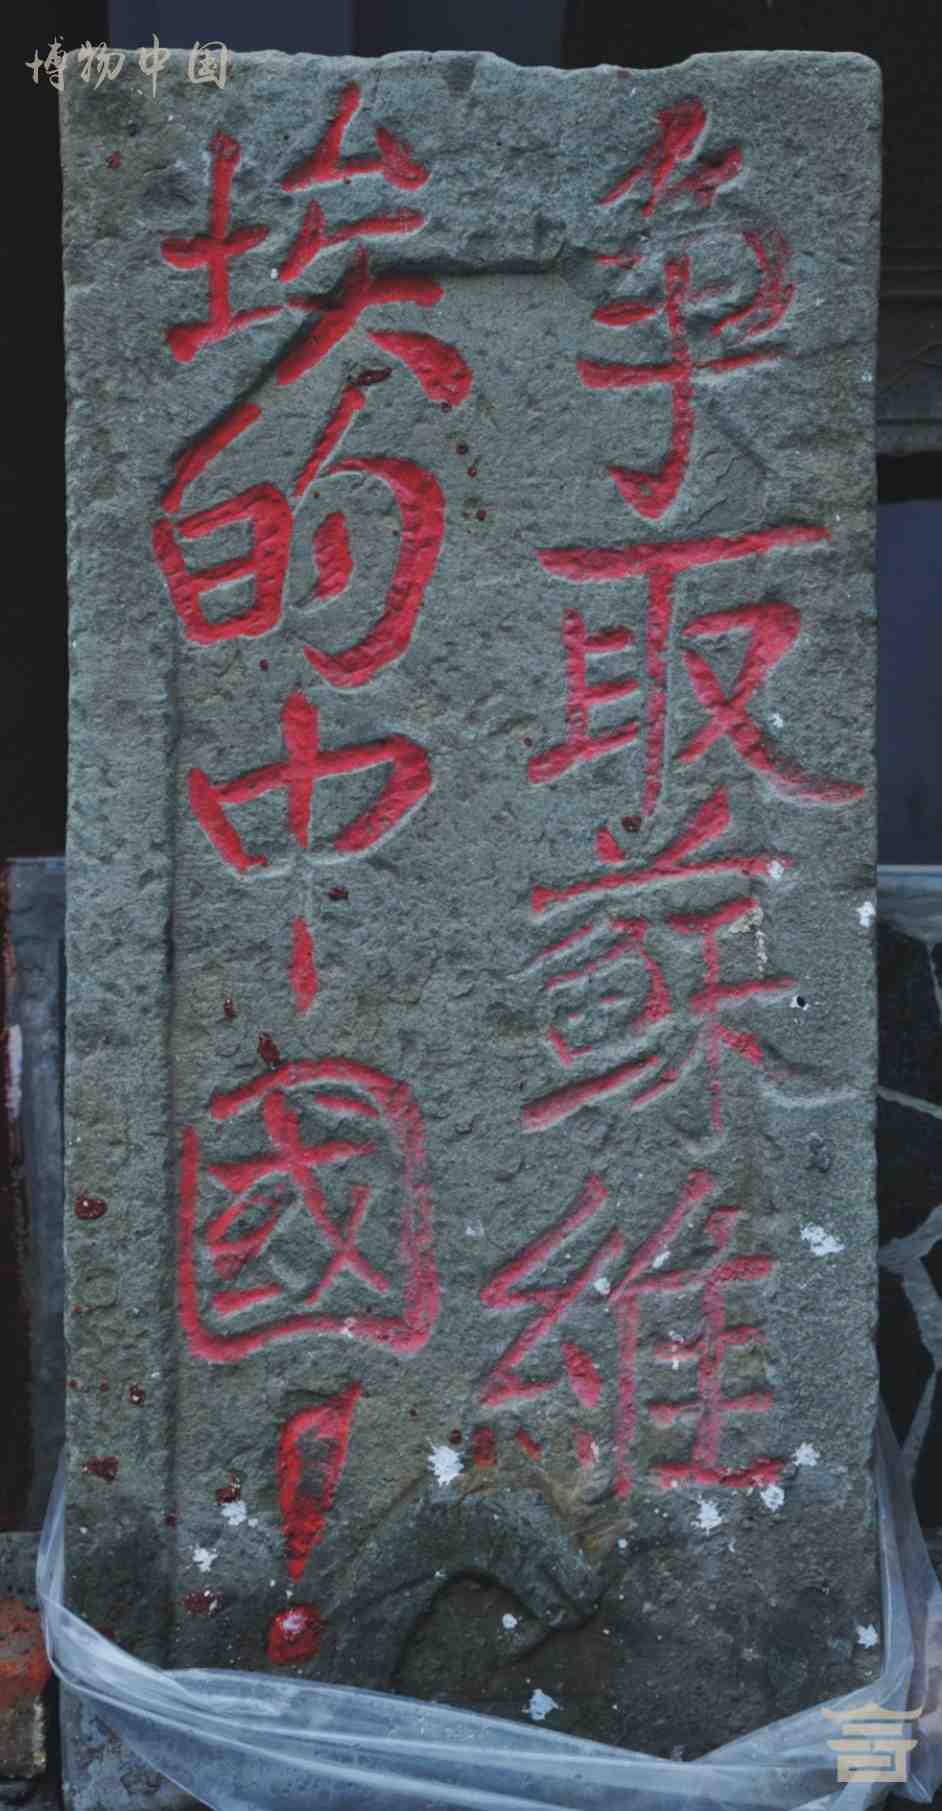 博物中国
争取蘇維
埃的中國！